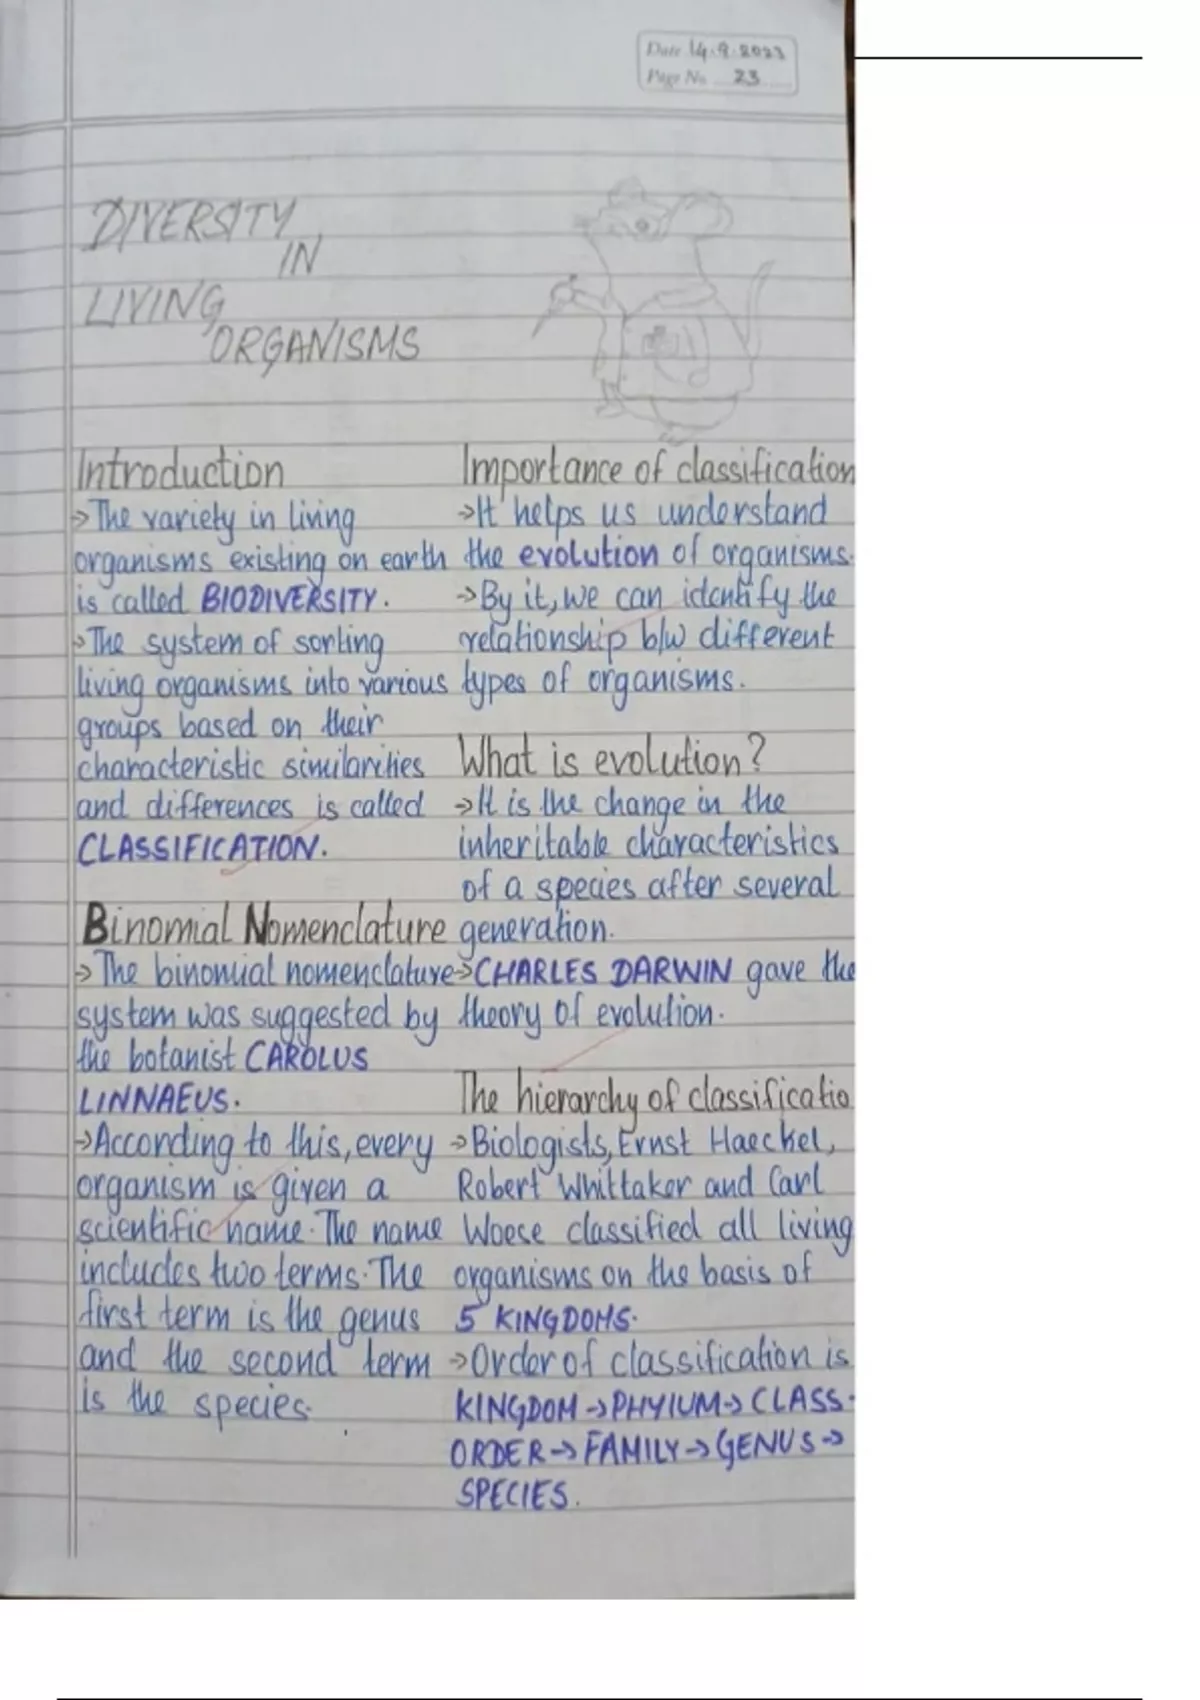 Date 14.9.2023
Page No. 23
DIVERSITY
IN
LIVING
ORGANISMS
Introduction
→The variety in living
organisms existing on earth
is called BIODIVERSITY.
→The system of sorting
living organisms into various
groups based on their
characteristic similarities
and differences is called
CLASSIFICATION.
Binomial Nomenclature
→The binomial nomenclature
system was suggested by
the botanist CAROLUS
LINNAEUS.
→According to this, every
organism is given a
scientific name. The name
includes two terms. The
first term is the genus
and the second term
is the species.
Importance of classification
→It helps us understand
the evolution of organisms.
→By it, we can identify the
relationship b/w different
types of organisms.
What is evolution?
→It is the change in the
inheritable characteristics
of a species after several
generation.
→CHARLES DARWIN gave the
theory of evolution.
The hierarchy of classificatio
→Biologists, Ernst Haeckel,
Robert Whittaker and Carl
Woese classified all living
organisms on the basis of
5 KINGDOMS.
→Order of classification is
KINGDOM→PHYIUM→CLASS-
ORDER→FAMILY→GENUS→
SPECIES.